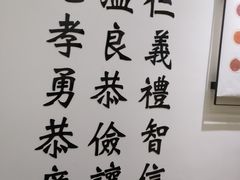 仁義禮智信
溫良恭儉讓
孝勇恭廉